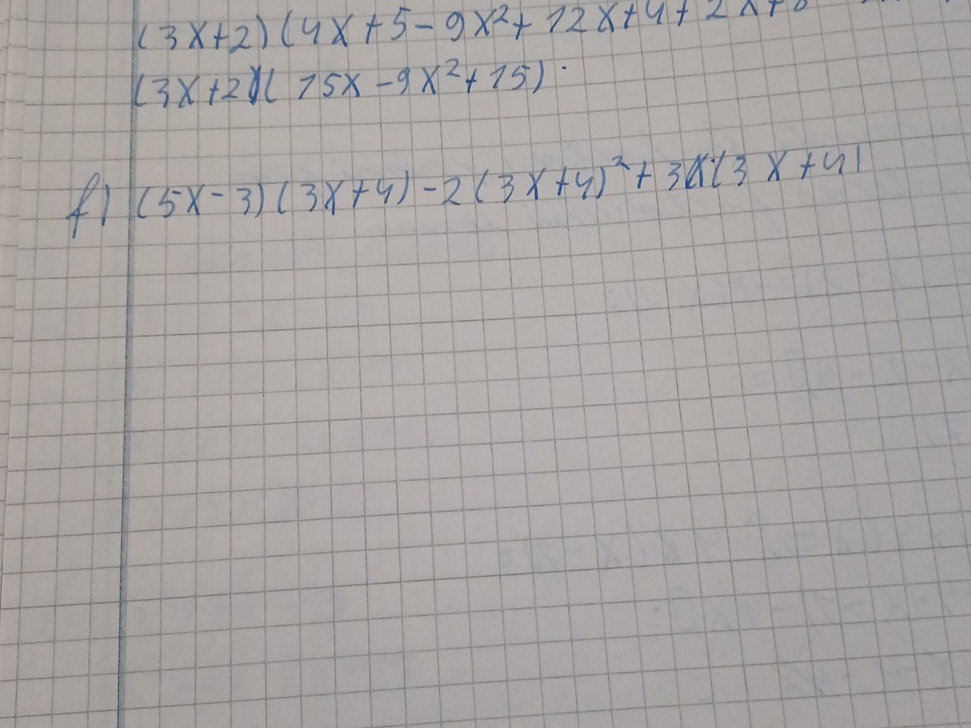 (3x+2)(4x+5-9x²+12x+4+2x+6
(3x+2)(15x-9x²+15)
f) (5x-3)(3x+4)-2(3x+4)²+3x(3x+4)